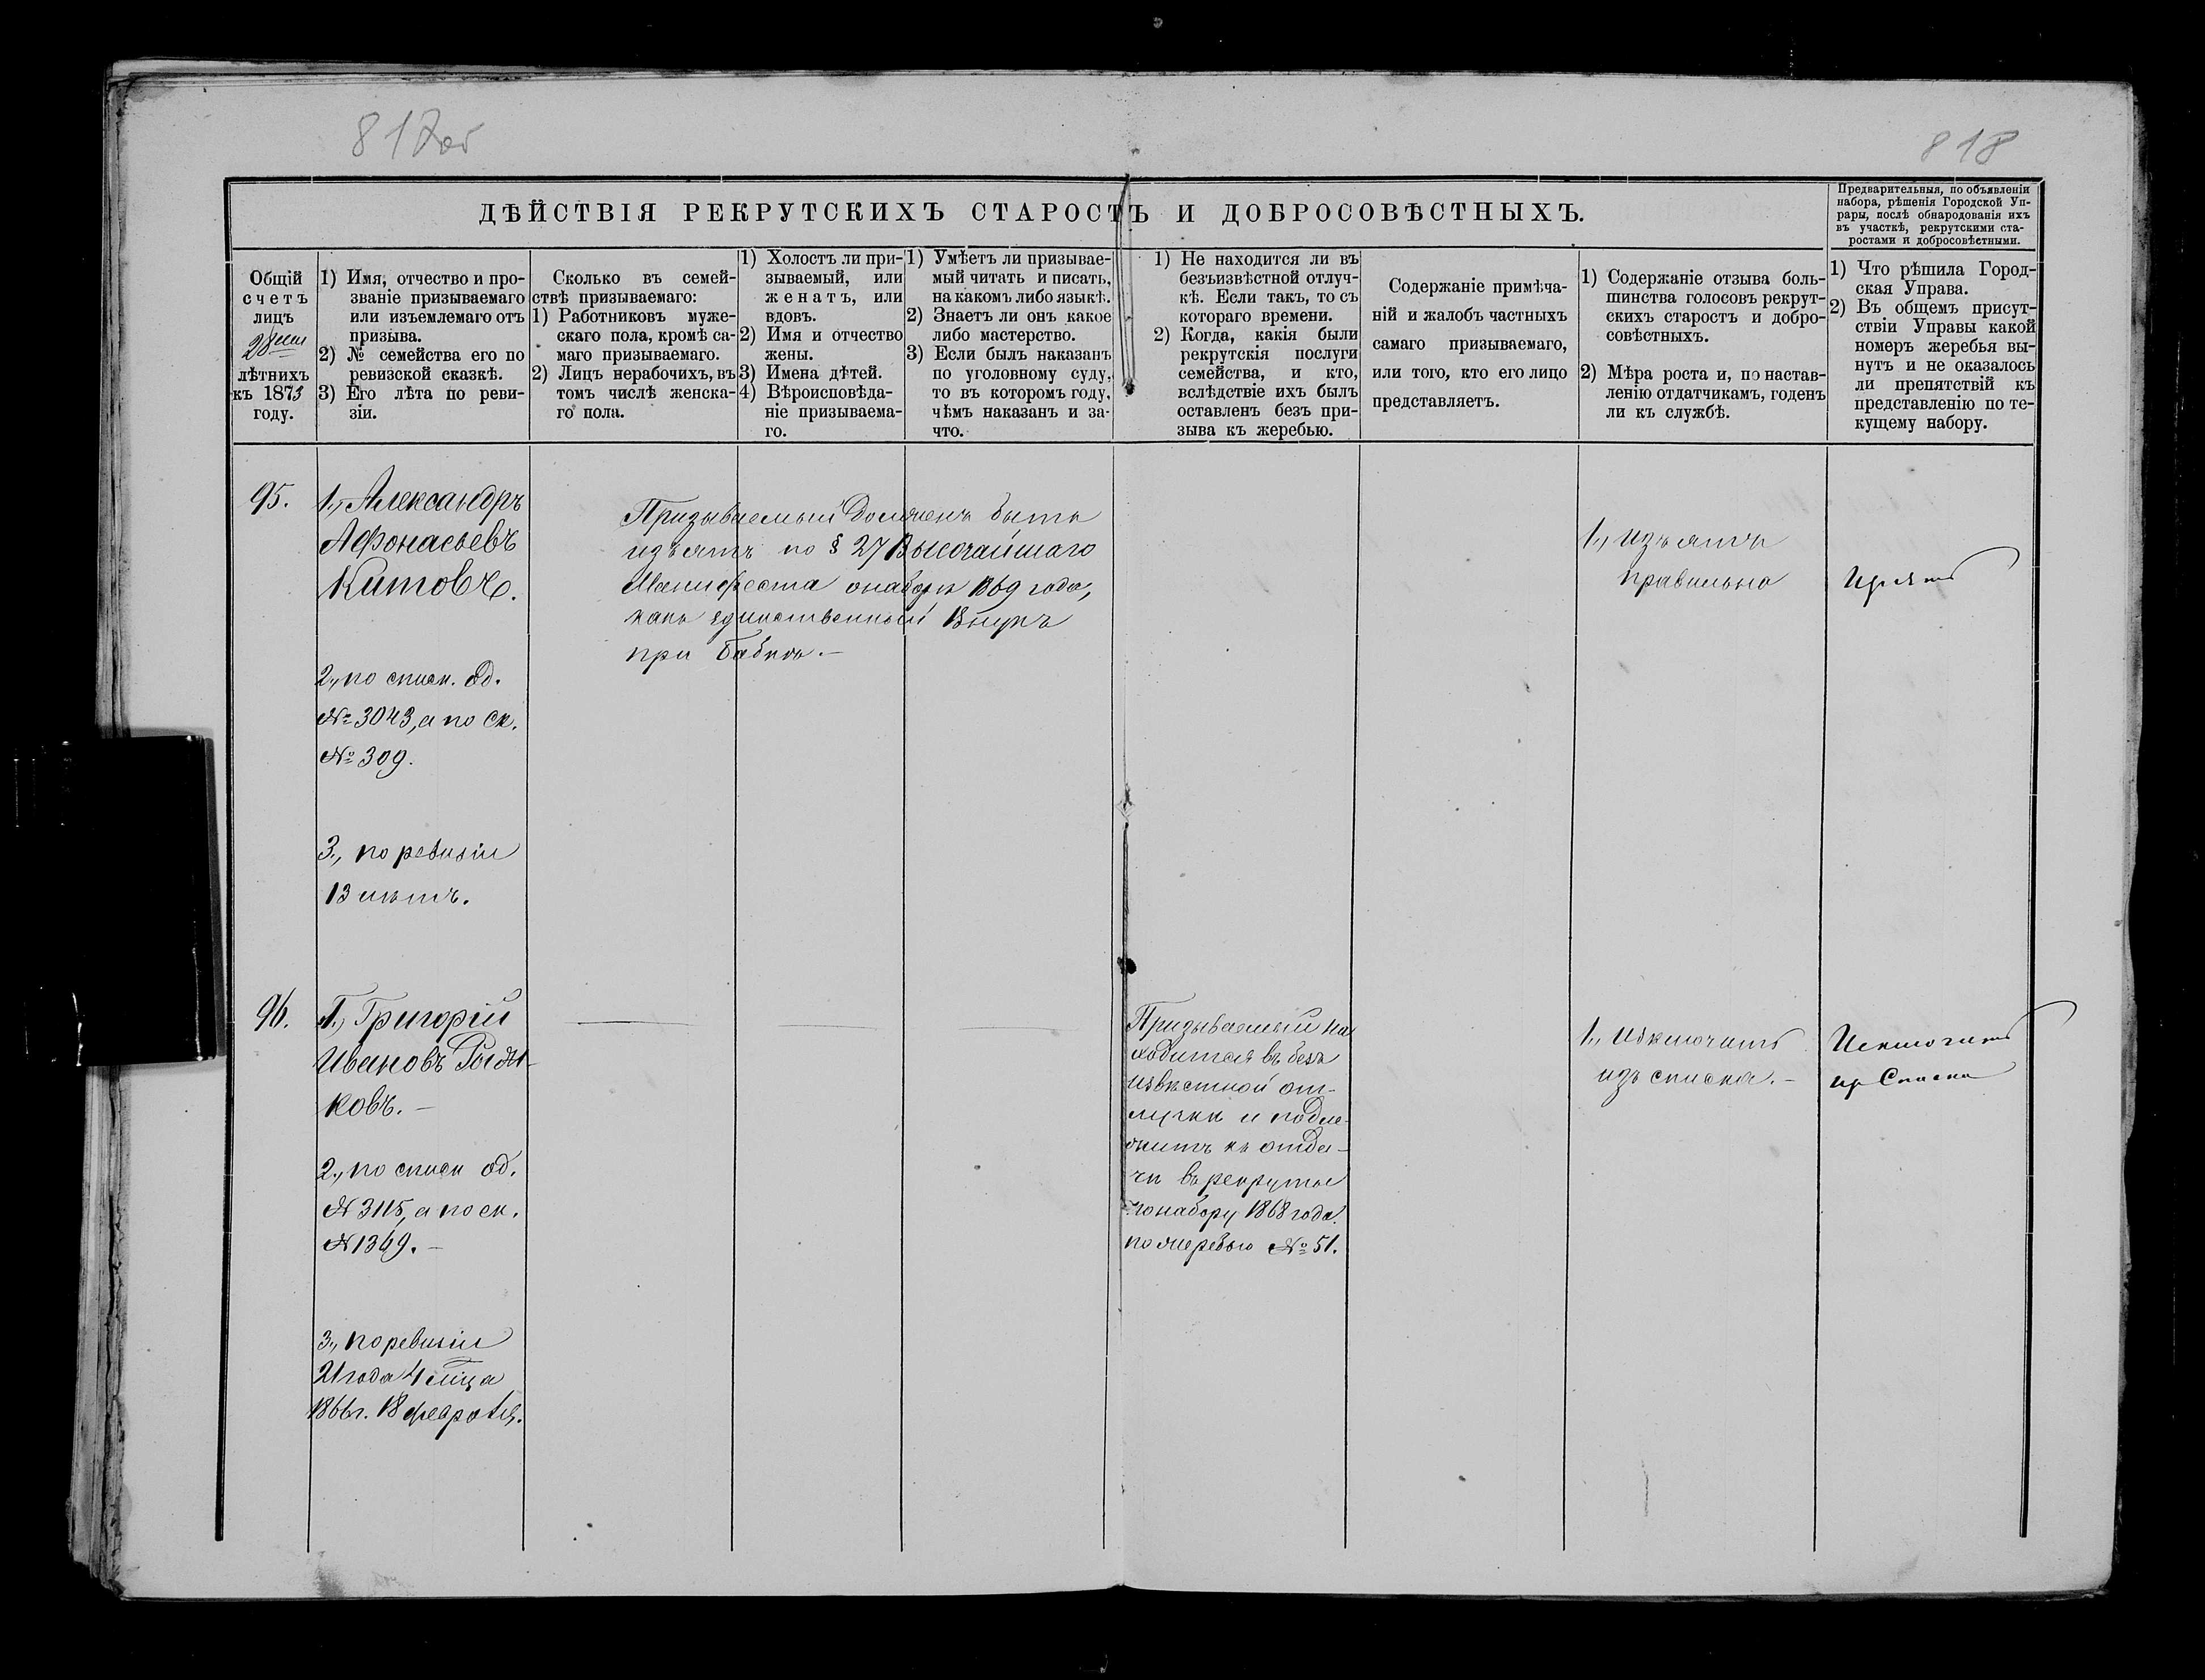 817об
818
ДѢЙСТВІЯ РЕКРУТСКИХЪ СТАРОСТЪ И ДОБРОСОВѢСТНЫХЪ.
Предварительныя, по объявленіи
набора, рѣшенія Городской Уп-
рары, послѣ обнародованія ихъ
въ участкѣ, рекрутскими ста-
ростами и добросовѣстными.
Общій
счетъ
лицъ
28ми
лѣтнихъ
къ 1873
году.
1) Имя, отчество и про-
званіе призываемаго
или изъемлемаго отъ
призыва.
2) № семейства его по
ревизской сказкѣ.
3) Его лѣта по реви-
зіи.
Сколько въ семей-
ствѣ призываемаго:
1) Работниковъ муже-
скаго пола, кромѣ са-
маго призываемаго.
2) Лицъ нерабочихъ, въ
томъ числѣ женска-
го пола.
1) Холостъ ли при-
зываемый, или
женатъ, или
вдовъ.
2) Имя и отчество
жены.
3) Имена дѣтей.
4) Вѣроисповѣда-
ніе призываема-
го.
1) Умѣетъ ли призывае-
мый читать и писать,
на какомъ либо языкѣ.
2) Знаетъ ли онъ какое
либо мастерство.
3) Если былъ наказанъ
по уголовному суду,
то въ которомъ году,
чѣмъ наказанъ и за-
что.
1) Не находится ли въ
безъизвѣстной отлуч-
кѣ. Если такъ, то съ
котораго времени.
2) Когда, какія были
рекрутскія послуги
семейства, и кто,
вслѣдствіе ихъ былъ
оставленъ безъ при-
зыва къ жеребью.
Содержаніе примѣча-
ній и жалобъ частныхъ
самаго призываемаго,
или того, кто его лицо
представляетъ.
1) Содержаніе отзыва боль-
шинства голосовъ рекрут-
скихъ старостъ и добро-
совѣстныхъ.
2) Мѣра роста и, по настав-
ленію отдатчикамъ, годенъ
ли къ службѣ.
1) Что рѣшила Город-
ская Управа.
2) Въ общемъ присут-
ствіи Управы какой
номеръ жеребья вы-
нутъ и не оказалось
ли препятствій къ
представленію по те-
кущему набору.
95.
1., Александръ
Афонасьевъ
Китовъ.
2., по списк. од.
№ 3043, а по ск.
№ 309.
3., по ревизіи
13 лѣтъ.
Призываемый долженъ быть
изъятъ по § 27 Высочайшаго
Манифеста о наборѣ 1869 года,
какъ единственный внукъ
при бабкѣ.—
1., изъять
правильно
Изъять
96.
1., Григорій
Ивановъ
ковъ.—
2., по списк од.
№ 3115, а по ск.
№ 1369.—
3., по ревизіи
21 года 4 мца
1866 г. 18 февраля.
Призываемый на
ходится въ безъ
извѣстной от-
лучкѣ и подле-
житъ къ отда-
чѣ въ рекруты
по набору 1868 года.
по жеребью № 51.
1., исключить
изъ списка.—
Исключить
из Списка